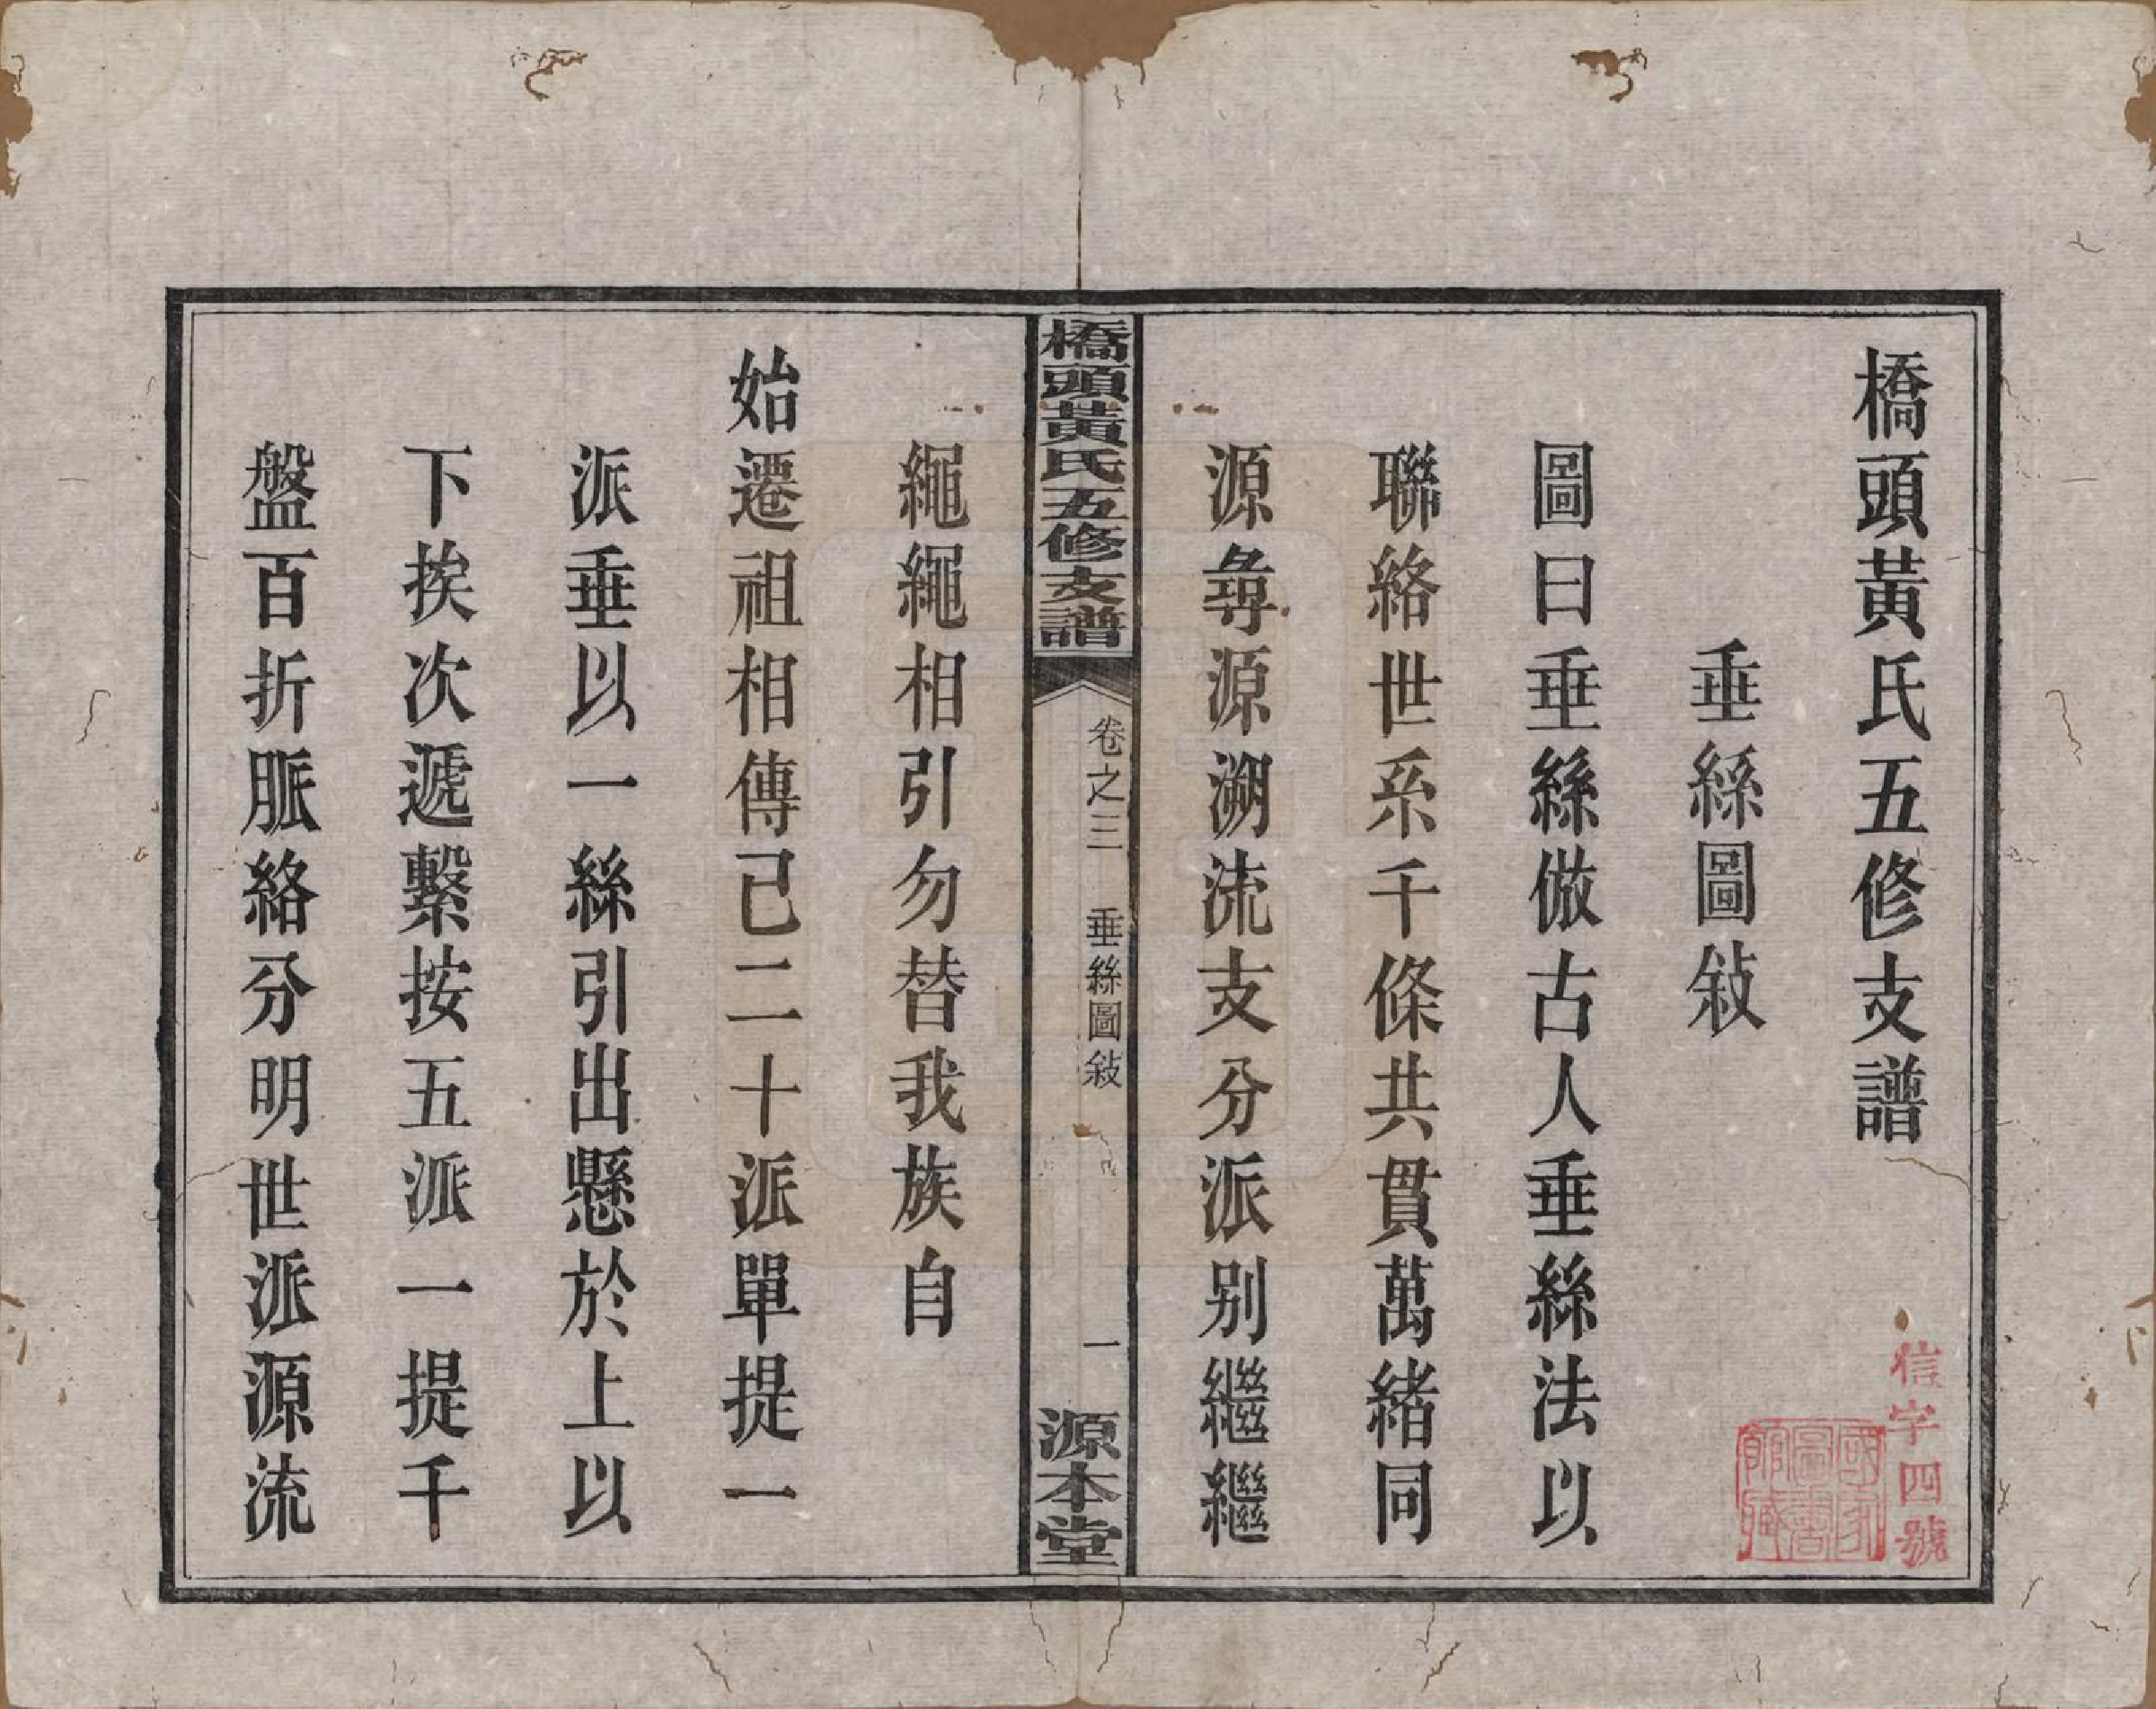 橋頭黃氏五修支譜
垂絲圖敍
圖曰垂絲倣古人垂絲法以
聯絡世系千條共貫萬緒同
源尋源溯流支分派別繼繼
橋頭黃氏五修支譜
卷之三 垂絲圖敍
一
源本堂
繩繩相引勿替我族自
始遷祖相傳已二十派單提一
派垂以一絲引出懸於上以
下挨次遞繫按五派一提千
盤百折脈絡分明世派源流
信字四號
國家圖書館藏